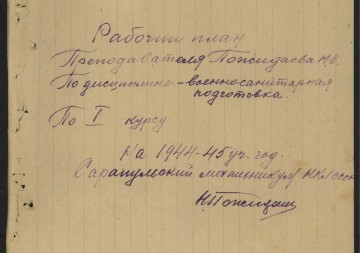 Рабочий план
Преподавателя Пожидаева Н.В.
По дисциплине - военносанитарная
подготовка.
По I курсу
На 1944-45 уч. год.
Сарапульский мехтехникум НКЛ СССР
Н Пожидаев